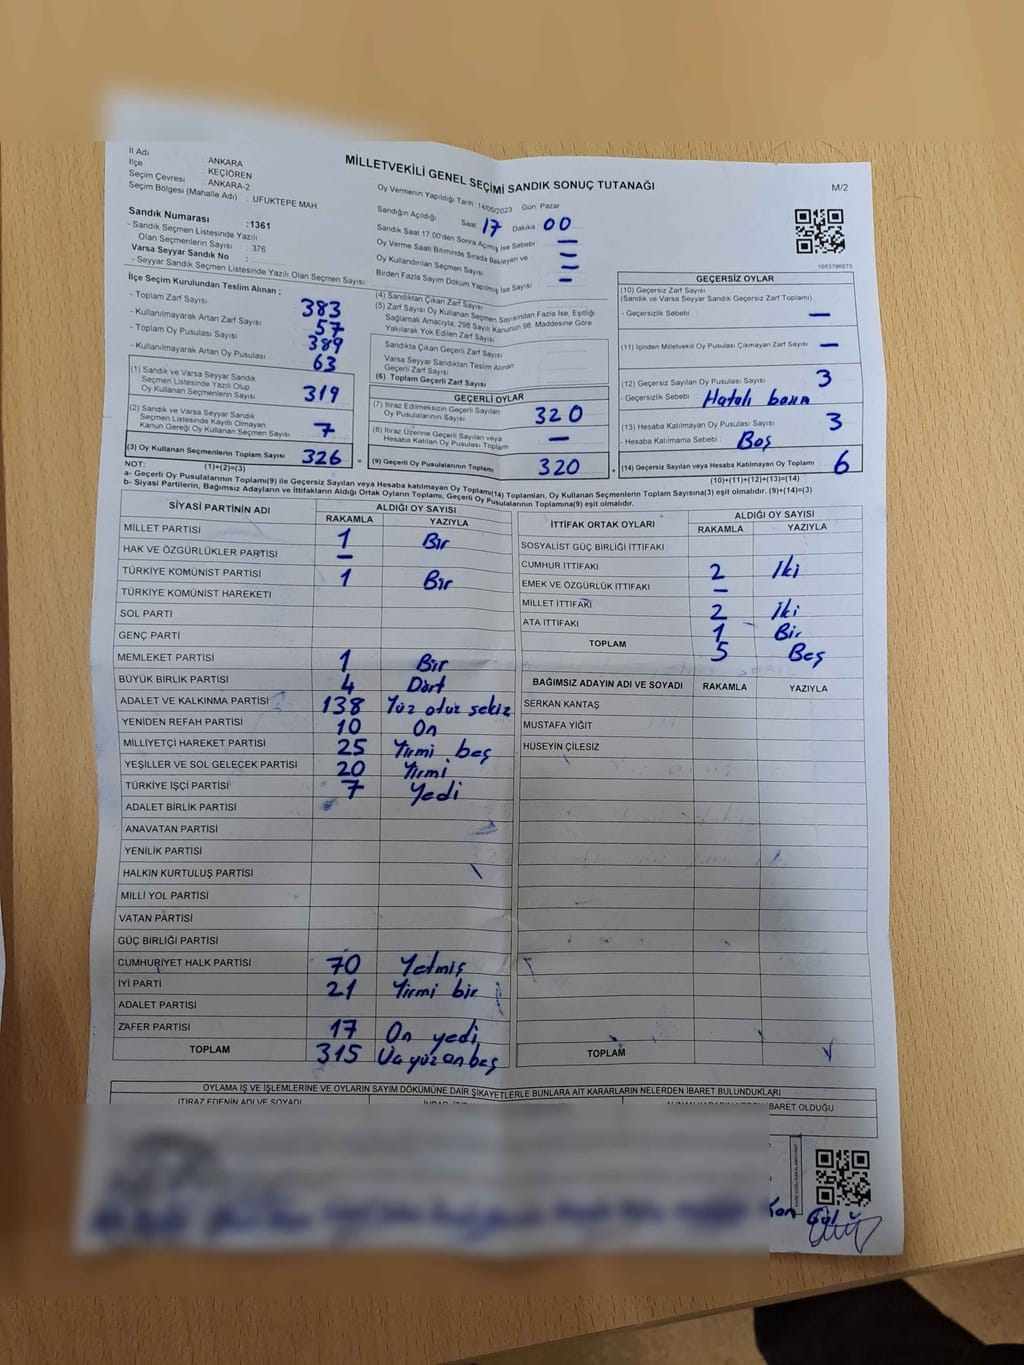 İl Adı : ANKARA
İlçe : KEÇİÖREN
Seçim Çevresi : ANKARA-2
Seçim Bölgesi (Mahalle Adı) : UFUKTEPE MAH
Sandık Numarası :1361
- Sandık Seçmen Listesinde Yazılı
Olan Seçmenlerin Sayısı : 376
Varsa Seyyar Sandık No :
- Seyyar Sandık Seçmen Listesinde Yazılı Olan Seçmen Sayısı
MİLLETVEKİLİ GENEL SEÇİMİ SANDIK SONUÇ TUTANAĞI
M/2
Oy Vermenin Yapıldığı Tarih 14/05/2023 Gün: Pazar
Sandığın Açıldığı Saat 17 Dakika 00
Sandık Saat 17:00'den Sonra Açılmış İse Sebebi —
Oy Verme Saati Bitiminde Sırada Bekleyen ve
Oy Kullandırılan Seçmen Sayısı —
Birden Fazla Sayım Döküm Yapılmış İse Sayısı —
1083790075
İlçe Seçim Kurulundan Teslim Alınan ;
- Toplam Zarf Sayısı 383
- Kullanılmayarak Artan Zarf Sayısı 57
- Toplam Oy Pusulası Sayısı 389
- Kullanılmayarak Artan Oy Pusulası 63
(1) Sandık ve Varsa Seyyar Sandık
Seçmen Listesinde Yazılı Olup
Oy Kullanan Seçmenlerin Sayısı 319
(2) Sandık ve Varsa Seyyar Sandık
Seçmen Listesinde Kayıtlı Olmayan
Kanun Gereği Oy Kullanan Seçmen Sayısı 7
(3) Oy Kullanan Seçmenlerin Toplam Sayısı 326
(1)+(2)=(3)
(4) Sandıktan Çıkan Zarf Sayısı
(5) Zarf Sayısı Oy Kullanan Seçmen Sayısından Fazla İse, Eşitliği
Sağlamak Amacıyla, 298 Sayılı Kanunun 98. Maddesine Göre
Yakılarak Yok Edilen Zarf Sayısı
Sandıkta Çıkan Geçerli Zarf Sayısı
Varsa Seyyar Sandıktan Teslim Alınan
Geçerli Zarf Sayısı
(6) Toplam Geçerli Zarf Sayısı
GEÇERLİ OYLAR
(7) İtiraz Edilmeksizin Geçerli Sayılan
Oy Pusulalarının Sayısı 320
(8) İtiraz Üzerine Geçerli Sayılan veya
Hesaba Katılan Oy Pusulası Toplamı —
= (9) Geçerli Oy Pusulalarının Toplamı 320
GEÇERSİZ OYLAR
(10) Geçersiz Zarf Sayısı
(Sandık ve Varsa Seyyar Sandık Geçersiz Zarf Toplamı)
- Geçersizlik Sebebi —
(11) İçinden Milletvekili Oy Pusulası Çıkmayan Zarf Sayısı —
(12) Geçersiz Sayılan Oy Pusulası Sayısı 3
- Geçersizlik Sebebi : Hatalı basım
(13) Hesaba Katılmayan Oy Pusulası Sayısı 3
- Hesaba Katılmama Sebebi : Boş
+ (14) Geçersiz Sayılan veya Hesaba Katılmayan Oy Toplamı 6
(10)+(11)+(12)+(13)=(14)
NOT:
a- Geçerli Oy Pusulalarının Toplamı(9) ile Geçersiz Sayılan veya Hesaba Katılmayan Oy Toplamı(14) Toplamları, Oy Kullanan Seçmenlerin Toplam Sayısına(3) eşit olmalıdır. (9)+(14)=(3)
b- Siyasi Partilerin, Bağımsız Adayların ve İttifakların Aldığı Ortak Oyların Toplamı, Geçerli Oy Pusulalarının Toplamına(9) eşit olmalıdır.
SİYASİ PARTİNİN ADI ALDIĞI OY SAYISI
RAKAMLA YAZIYLA
MİLLET PARTİSİ 1 Bir
HAK VE ÖZGÜRLÜKLER PARTİSİ —
TÜRKİYE KOMÜNİST PARTİSİ 1 Bir
TÜRKİYE KOMÜNİST HAREKETİ
SOL PARTİ
GENÇ PARTİ
MEMLEKET PARTİSİ 1 Bir
BÜYÜK BİRLİK PARTİSİ 4 Dört
ADALET VE KALKINMA PARTİSİ 138 Yüz otuz sekiz
YENİDEN REFAH PARTİSİ 10 On
MİLLİYETÇİ HAREKET PARTİSİ 25 Yirmi beş
YEŞİLLER VE SOL GELECEK PARTİSİ 20 Yirmi
TÜRKİYE İŞÇİ PARTİSİ 7 Yedi
ADALET BİRLİK PARTİSİ
ANAVATAN PARTİSİ
YENİLİK PARTİSİ
HALKIN KURTULUŞ PARTİSİ
MİLLİ YOL PARTİSİ
VATAN PARTİSİ
GÜÇ BİRLİĞİ PARTİSİ
CUMHURİYET HALK PARTİSİ 70 Yetmiş
İYİ PARTİ 21 Yirmi bir
ADALET PARTİSİ
ZAFER PARTİSİ 17 On yedi
TOPLAM 315 Üçyüz onbeş
İTTİFAK ORTAK OYLARI ALDIĞI OY SAYISI
RAKAMLA YAZIYLA
SOSYALİST GÜÇ BİRLİĞİ İTTİFAKI
CUMHUR İTTİFAKI 2 İki
EMEK VE ÖZGÜRLÜK İTTİFAKI —
MİLLET İTTİFAKI 2 İki
ATA İTTİFAKI 1 Bir
TOPLAM 5 Beş
BAĞIMSIZ ADAYIN ADI VE SOYADI RAKAMLA YAZIYLA
SERKAN KANTAŞ
MUSTAFA YİĞİT
HÜSEYİN ÇİLESİZ
TOPLAM
OYLAMA İŞ VE İŞLEMLERİNE VE OYLARIN SAYIM DÖKÜMÜNE DAİR ŞİKAYETLERLE BUNLARA AİT KARARLARIN NELERDEN İBARET BULUNDUKLARI
İTİRAZ EDENİN ADI VE SOYADI
İBARET OLDUĞU